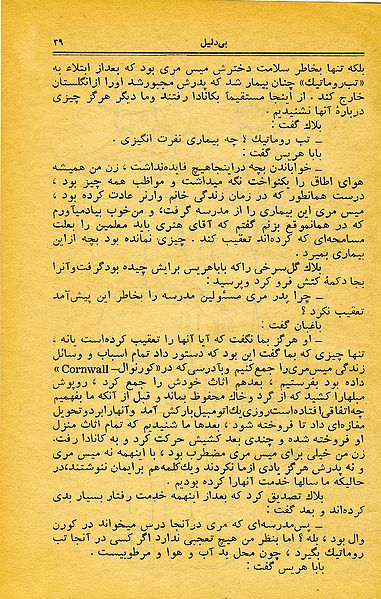 بی‌دلیل ۳۹
بلکه تنها بخاطر سلامت دخترش میس مری بود که بعداز ابتلاء به
«تب‌روماتیك» چنان بیمار شد که پدرش مجبورشد اورا ازانگلستان
خارج کند . از اینجا مستقیماً بکانادا رفتند وما دیگر هرگز چیزی
دربارهٔ آنها نشنیدیم .
بلاك گفت :
ـ تب روماتیك ! چه بیماری نفرت انگیزی .
بابا هریس گفت :
ـ خواباندن بچه دراینجاهیچ فایده‌نداشت ، زن من همیشه
هوای اطاق را یکنواخت نگه میداشت و مواظب همه چیز بود ،
درست همانطور که در زمان زندگی خانم وارنر عادت کرده بود ،
میس مری این بیماری را از مدرسه گرفت، و من‌خوب بیادمیآورم
که در همانموقع بزنم گفتم که آقای هنری باید معلمین را بعلت
مسامحه‌ای که کرده‌اند تعقیب کند . چیزی نمانده بود بچه ازاین
بیماری بمیرد .
بلاك گل‌سرخی راکه باباهریس برایش چیده بودگرفت‌وآنرا
بجا دکمهٔ کتش فرو کرد وپرسید :
ـ چرا پدر مری مسئولین مدرسه را بخاطر این پیش‌آمد
تعقیب نکرد ؟
باغبان گفت :
ـ او هرگز بما نگفت که آیا آنها را تعقیب کرده‌است یانه ،
تنها چیزی که بما گفت این بود که دستور داد تمام اسباب و وسائل
زندگی میس‌مری‌را جمع‌کنیم وبآدرسی‌که در«کورنوال– Cornwall»
داده بود بفرستیم ، بعدهم اثاث خودش را جمع کرد ، روپوش
مبلهارا کشید که از گرد وخاك محفوظ بماند و قبل از آنکه ما بفهمیم
چه‌اتفاقی‌افتاده‌است‌روزی‌یك‌اتومبیل‌بارکش آمد وآنهارابردوتحویل
مغازه‌ای داد تا فروخته شود ، بعدها ما شنیدیم که تمام اثاث منزل
او فروخته شده و چندی بعد کشیش حرکت کرد و به کانادا رفت.
زن من خیلی برای میس مری مضطرب بود ، با اینهمه نه میس مری
و نه پدرش هرگز یادی ازما نکردند ویك‌کلمه‌هم برایمان ننوشتند،در
حالیکه ما سالها خدمت آنهارا کرده بودیم .
بلاك تصدیق کرد که بعداز اینهمه خدمت رفتار بسیار بدی
کرده‌اند و بعد گفت :
ـ پس‌مدرسه‌ای که مری درآنجا درس میخواند در کورن
وال بود ، بله ؟ اما بنظر من هیچ تعجبی ندارد اگر کسی در آنجا تب
روماتیك بگیرد ، چون محل بد آب و هوا و مرطوبیست .
بابا هریس گفت :